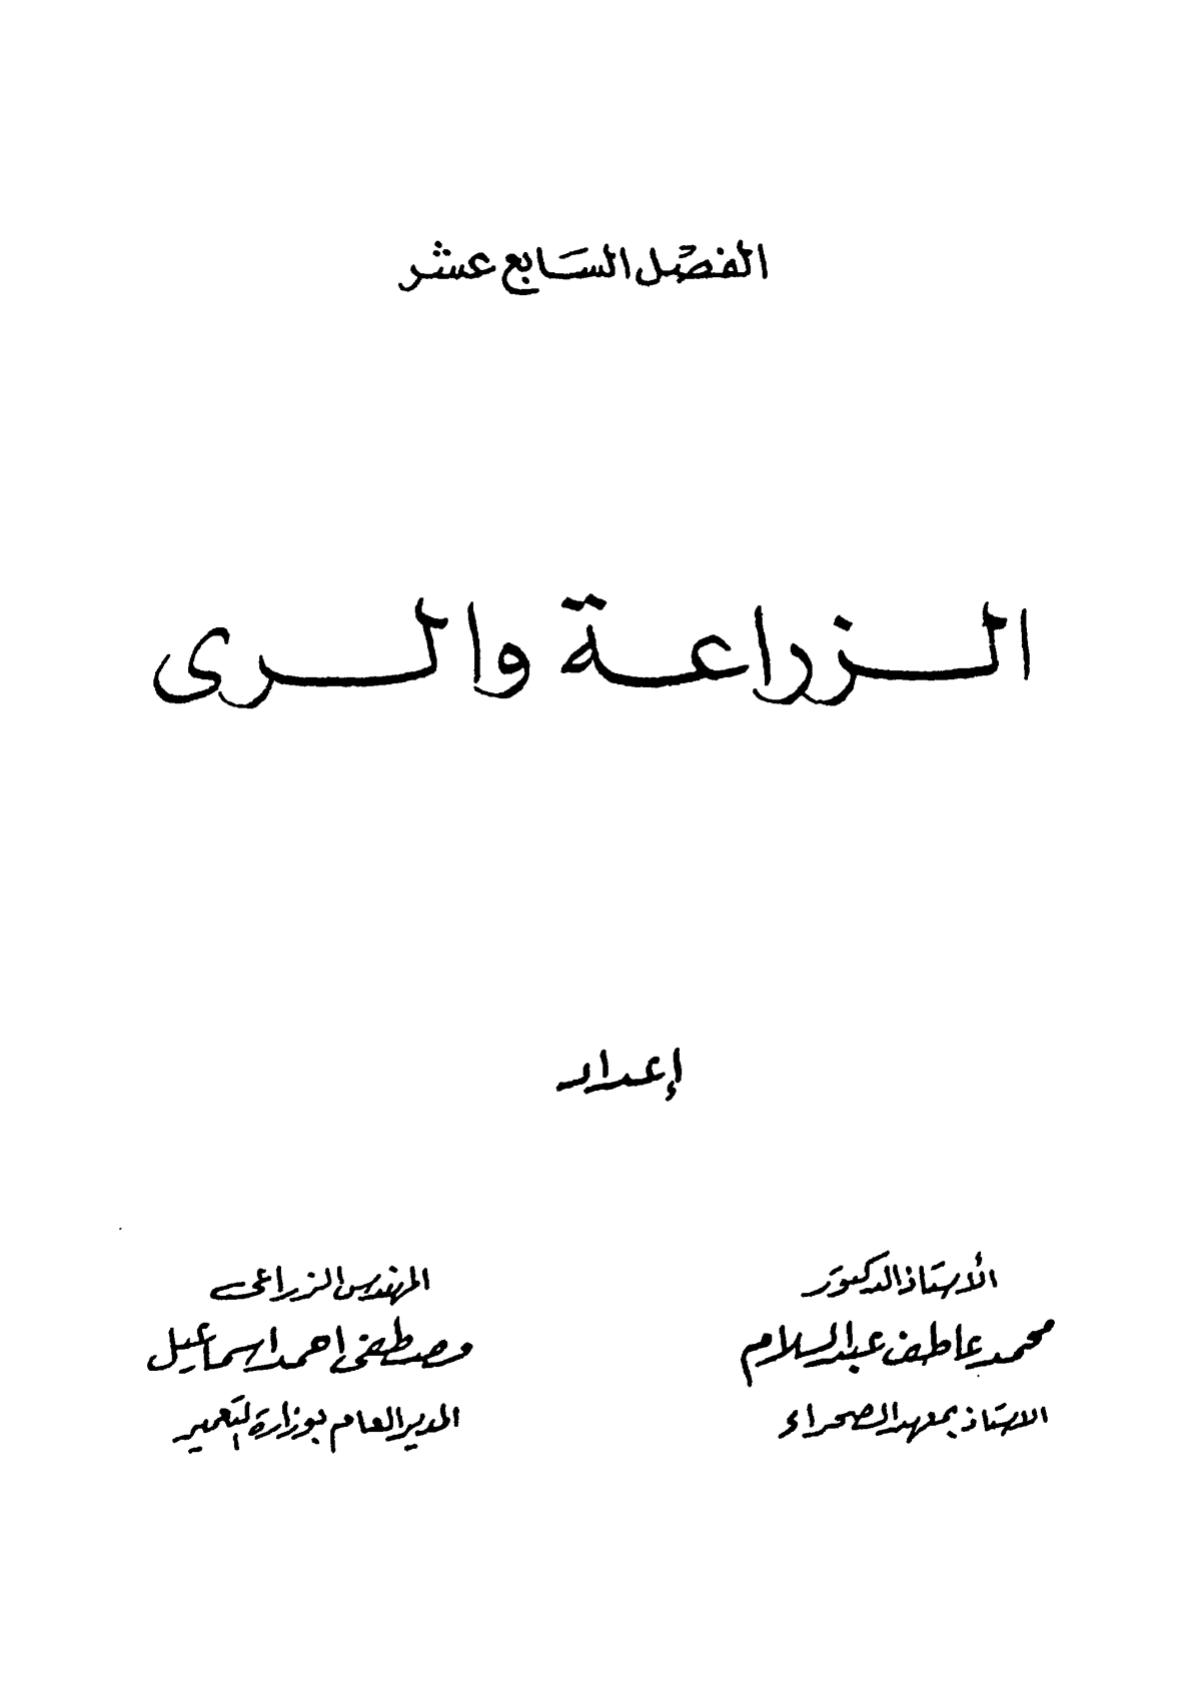 الفصل السابع عشر
الزراعة والرى
إعداد
الأستاذ الدكتور
محمد عاطف عبد السلام
الاستاذ بمعهد الصحراء
المهندس الزراعى
مصطفى احمد اسماعيل
المدير العام بوزارة التعمير